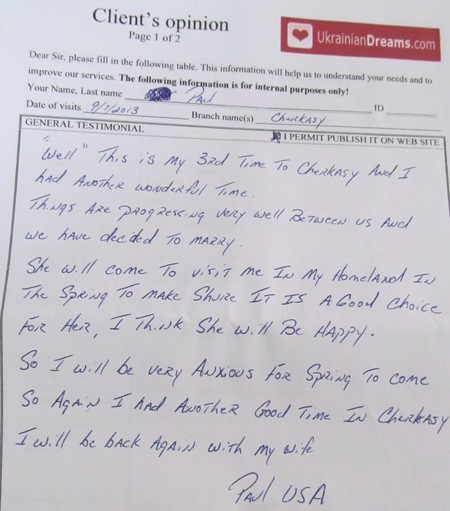 Client's opinion
Page 1 of 2
UkrainianDreams.com
Dear Sir, please fill in the following table. This information will help us to understand your needs and to
improve our services. The following information is for internal purposes only!
Your Name, Last name Paul ID
Date of visits 9/7/2013 Branch name(s) Cherkasy
GENERAL TESTIMONIAL I PERMIT PUBLISH IT ON WEB SITE
"Well" This is my 3rd Time To Cherkasy And I
had Another wonderful Time.
Things Are progressing very well Between us And
we have decided To marry.
She will come To visit me In My Homeland In
The Spring To make Shure It Is A Good Choice
For Her, I Think She will Be Happy.
So I will be very Anxious For Spring To come
So Again I had Another Good Time In Cherkasy
I will be back Again with my wife
Paul USA